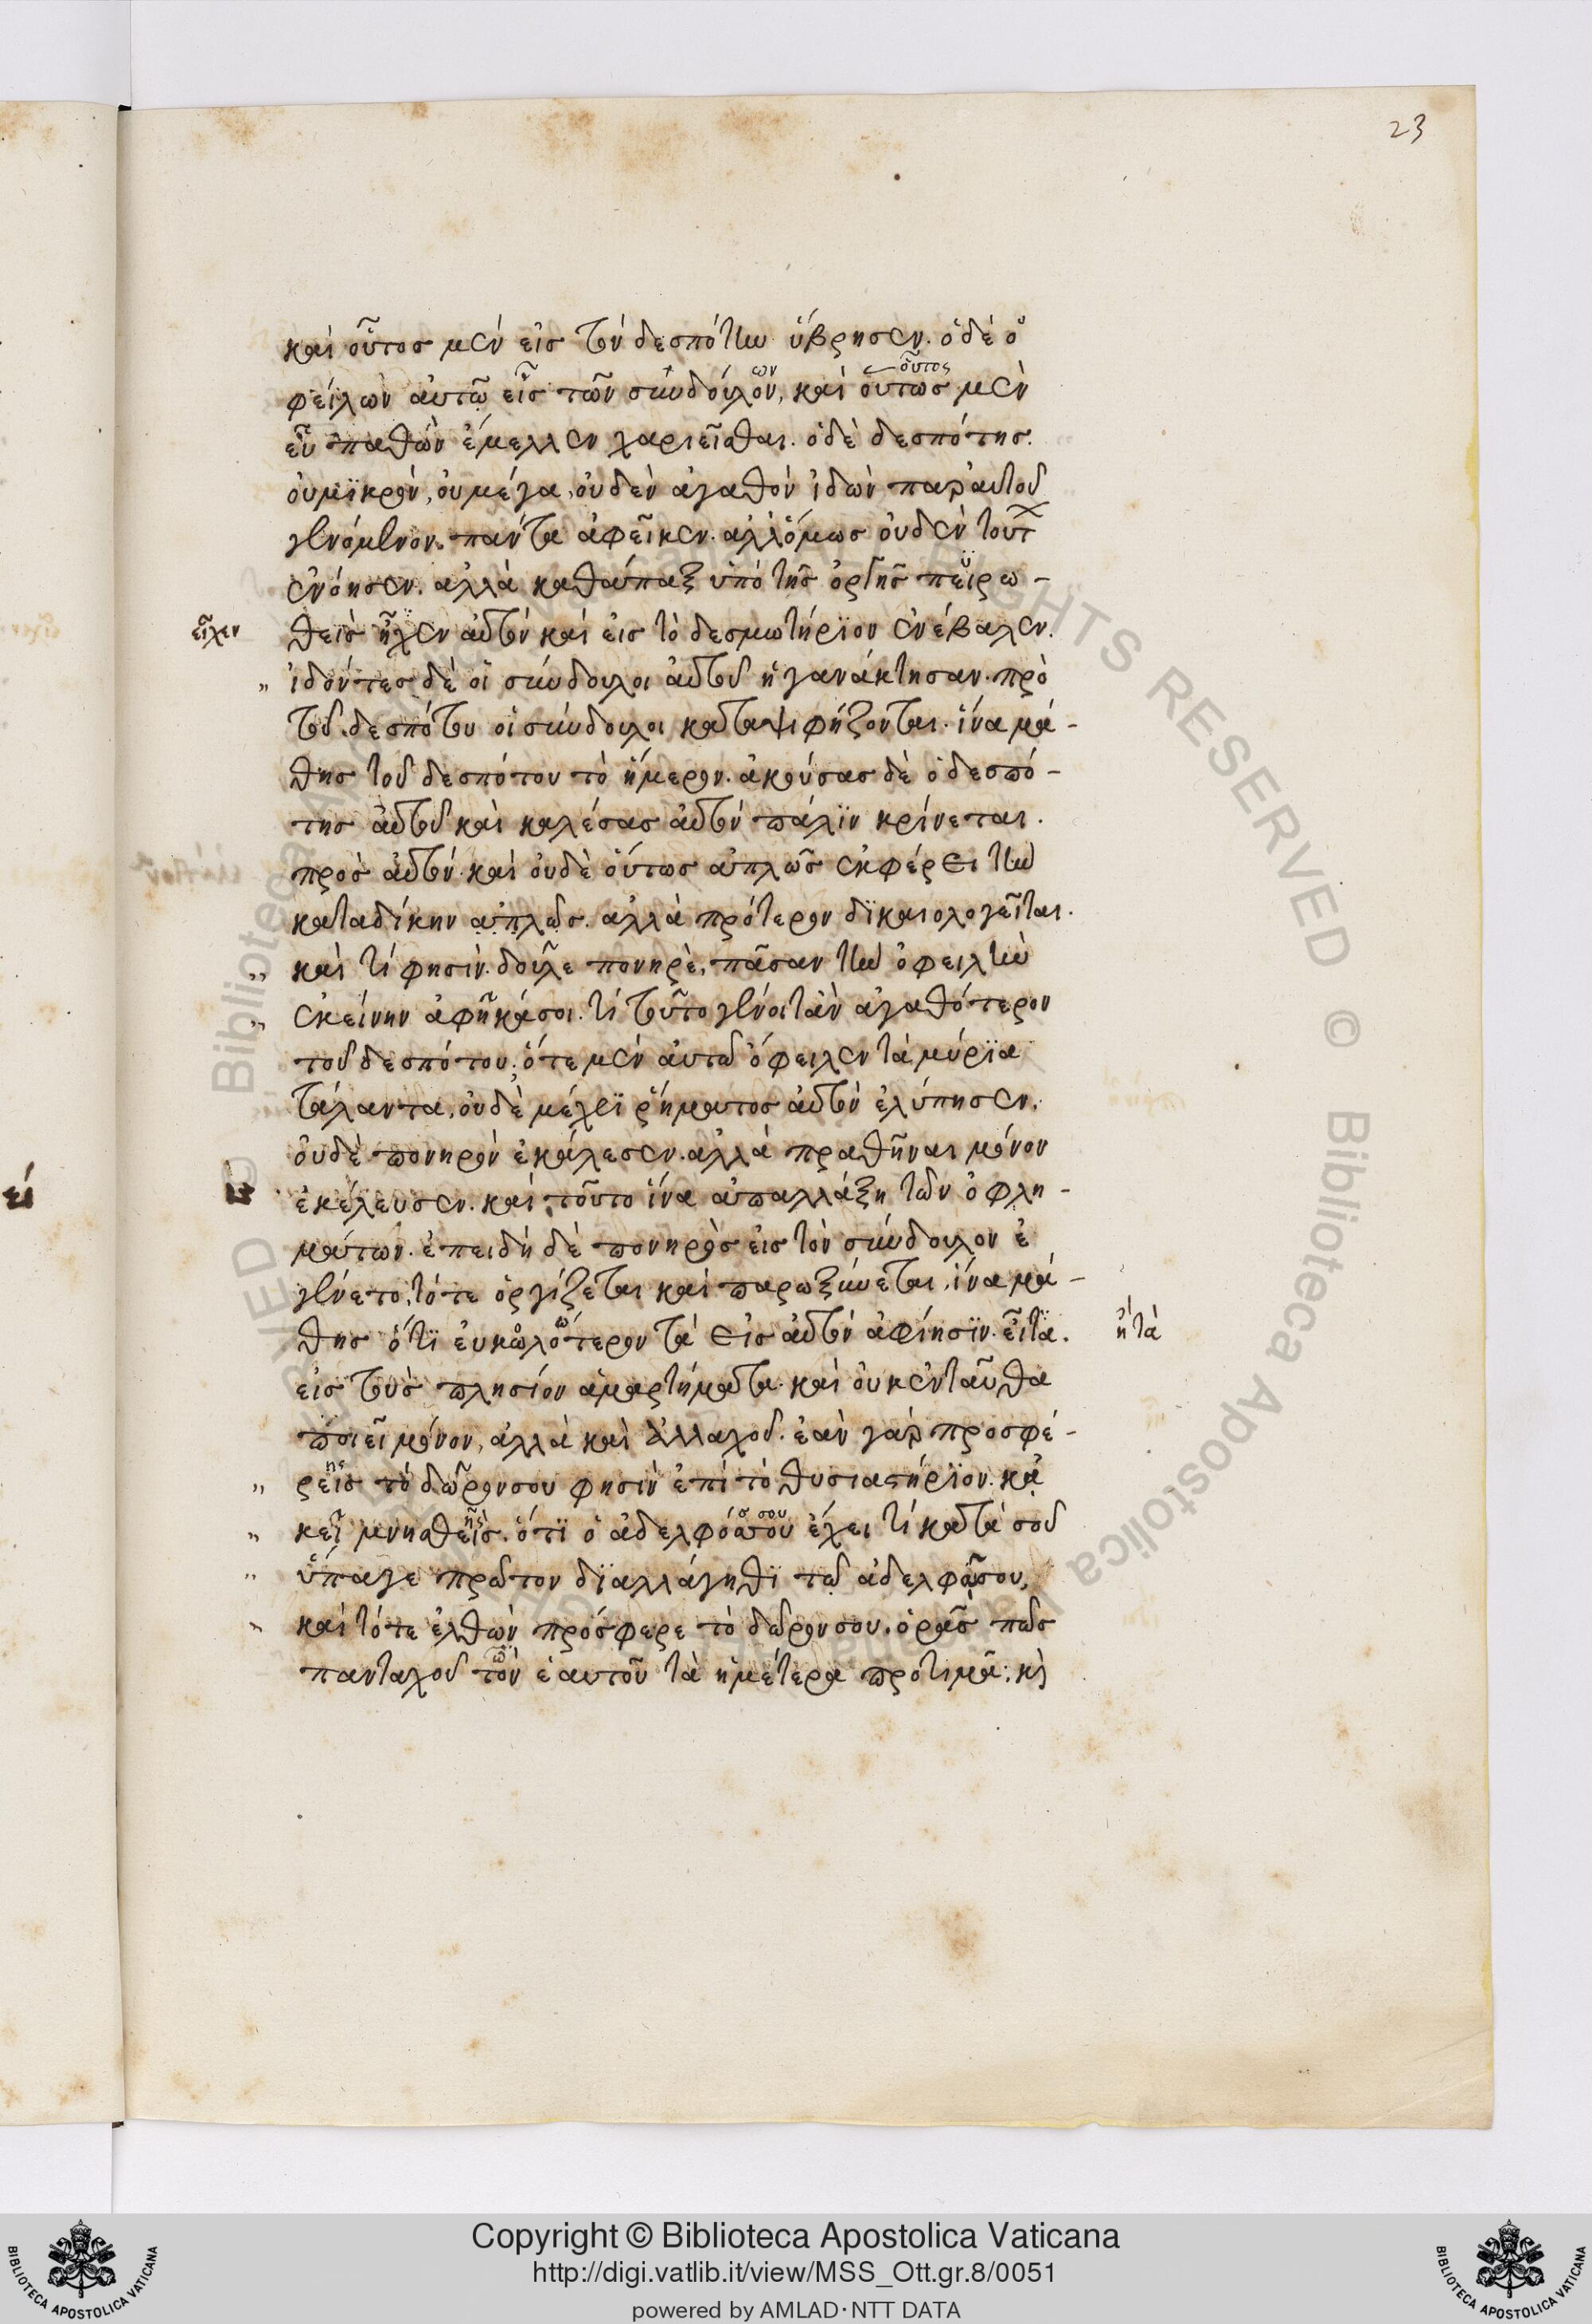 23
καὶ οὗτος μὲν εἰς τὸν δεσπότην ὕβρησεν. ὁ δὲ ὀ
φείλων αὐτῶ εἷς τῶν συνδούλον, καὶ οὕτως μὲν
ων
οὗτος
εὖ παθὼν ἔμελλεν χαριεῖσθαι. ὁ δὲ δεσπότης.
οὐ μϊκρὸν, οὐ μέγα, οὐδὲν ἀγαθὸν ἰδὼν παρ' αὐτοῦ
γενόμενον. πάντα ἀφεῖκεν. ἀλλ' ὅμως οὐδὲν τούτ
ἐνόησεν. ἀλλὰ καθάπαξ ὑπὸ τῆς ὀργῆς πειρω -
θεὶς ἦχεν αὐτὸν καὶ εἰς τὸ δεσμωτήρϊον ἐνέβαλεν.
εἶχεν
" ἰδόντες δὲ οἱ σύνδουλοι αὐτοῦ ἠγανάκτησαν. πρὸ
τοῦ δεσπότου οἱ σύνδουλοι καταψιφήζονται. ἵνα μά -
θης τοῦ δεσπότου τὸ ἥμερον. ἀκούσας δὲ ὁ δεσπό -
της αὐτοῦ καὶ καλέσας αὐτὸν πάλϊν κρίνεται.
πρὸς αὐτὸν. καὶ οὐδὲ οὕτως ἁπλῶς ἐκφέρει τὴν
καταδίκην ἁπλῶς. ἀλλὰ πρότερον δϊκαιολογεῖται.
" καὶ τί φησίν. δοῦλε πονηρὲ, πᾶσαν τὴν ὀφειλὴν
" ἐκείνην ἀφῆκά σοι. τί τοῦτο γένοιτ' ἂν ἀγαθότερον
τοῦ δεσπότου; ὅτε μὲν αὐτῶ ὄφειλεν τὰ μύρϊα
τάλαντα. οὐδὲ μέχρϊ ῥήματος αὐτὸν ἐλύπησεν.
οὐδὲ πονηρὸν ἐκάλεσεν. ἀλλὰ πραθῆναι μόνον
ἐκέλευσεν. καὶ τοῦτο ἵνα ἀπαλλάξη τῶν ὀφλη -
μάτων. ἐπειδὴ δὲ πονηρὸς εἰς τὸν σύνδουλον ἐ
γένετο, τότε ὀργίζεται καὶ παρωξύνεται. ἵνα μά -
θης ὅτϊ εὐκολότερον τὰ εἰς αὐτὸν ἀφίησϊν. εἶτα.
ἢ τὰ
εἰς τοὺς πλησίον ἁμαρτήματα. καὶ οὐκ ἐνταῦθα
ποιεῖ μόνον, ἀλλὰ καὶ ἀλλαχοῦ. ἐὰν γὰρ προσφέ -
" ρεις τὸ δῶρον σου φησὶν ἐπὶ τὸ θυσιαστήρϊον. κἀ
ης
" κεῖ μνησθεὶς. ὅτϊ ὁ ἀδελφό σου ἔχει τί κατὰ σοῦ
ῆς
" ὕπαγε πρῶτον δϊαλλάγηθϊ τῶ ἀδελφῶ σου,
" καὶ τότε ἐλθὼν πρόσφερε τὸ δῶρον σου. ὁρᾶς πῶς
πανταχοῦ τὸν ἑαυτοῦ τὰ ἡμέτερα προτιμᾶ; κὶ
Copyright © Biblioteca Apostolica Vaticana
http://digi.vatlib.it/view/MSS_Ott.gr.8/0051
powered by AMLAD·NTT DATA
BIBLIOTECA APOSTOLICA VATICANA
BIBLIOTECA APOSTOLICA VATICANA